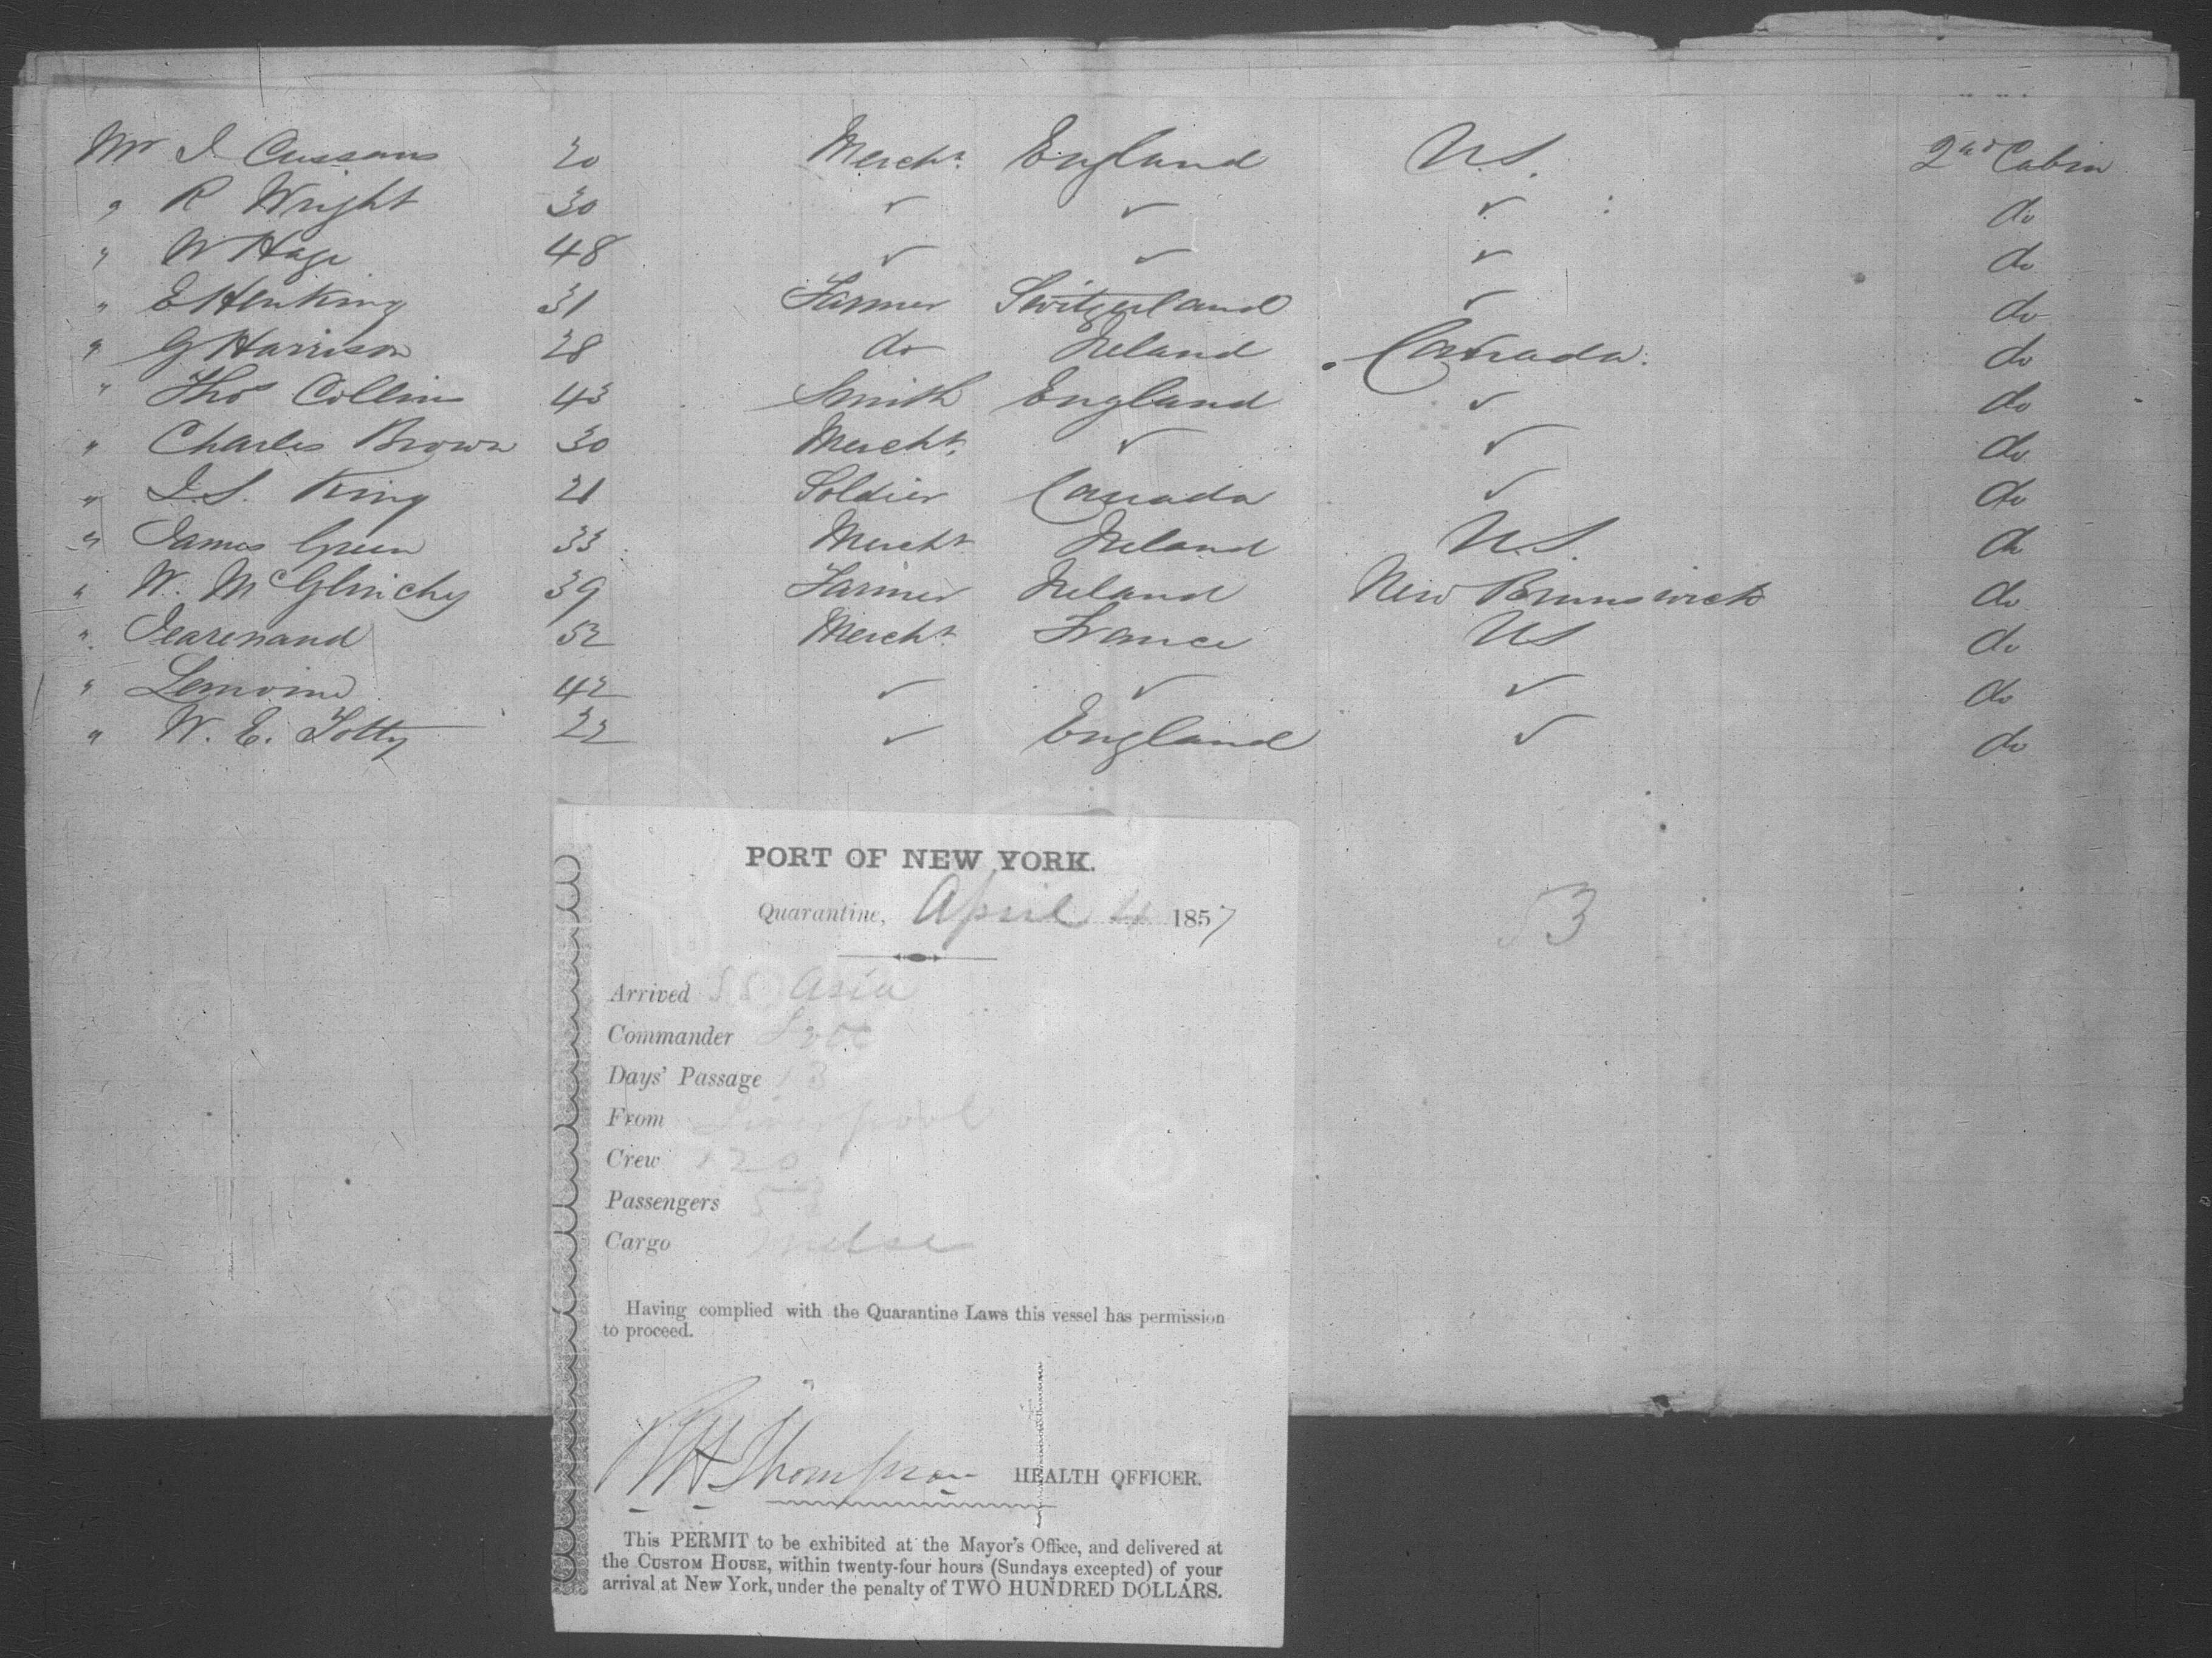 Mr J Cussans 20 Mercht. England U.S. 2nd Cabin
" R Wright 30 ✓ ✓ ✓ do
" W Hage 48 ✓ ✓ ✓ do
" E Henking 31 Farmer Switzerland ✓ do
" G Harrison 28 do Ireland Canada. do
" Thos Collins 43 Smith England ✓ do
" Charles Brown 30 Mercht. ✓ ✓ do
" J.S. King 21 Soldier Canada ✓ do
" James Green 33 Mercht Ireland U.S. do
" W. McGlinchy 39 Farmer Ireland New Brunswick do
" 52 Mercht. France US do
" Lemoine 42 ✓ ✓ ✓ do
" W. E. Totty 22 ✓ England ✓ do
53
PORT OF NEW YORK.
Quarantine, April 4 1857
Arrived SS Asia
Commander
Days' Passage 13
From Liverpool
Crew 120
Passengers 53
Cargo mdse
Having complied with the Quarantine Laws this vessel has permission
to proceed.
Thompson HEALTH OFFICER.
This PERMIT to be exhibited at the Mayor's Office, and delivered at
the CUSTOM HOUSE, within twenty-four hours (Sundays excepted) of your
arrival at New York, under the penalty of TWO HUNDRED DOLLARS.